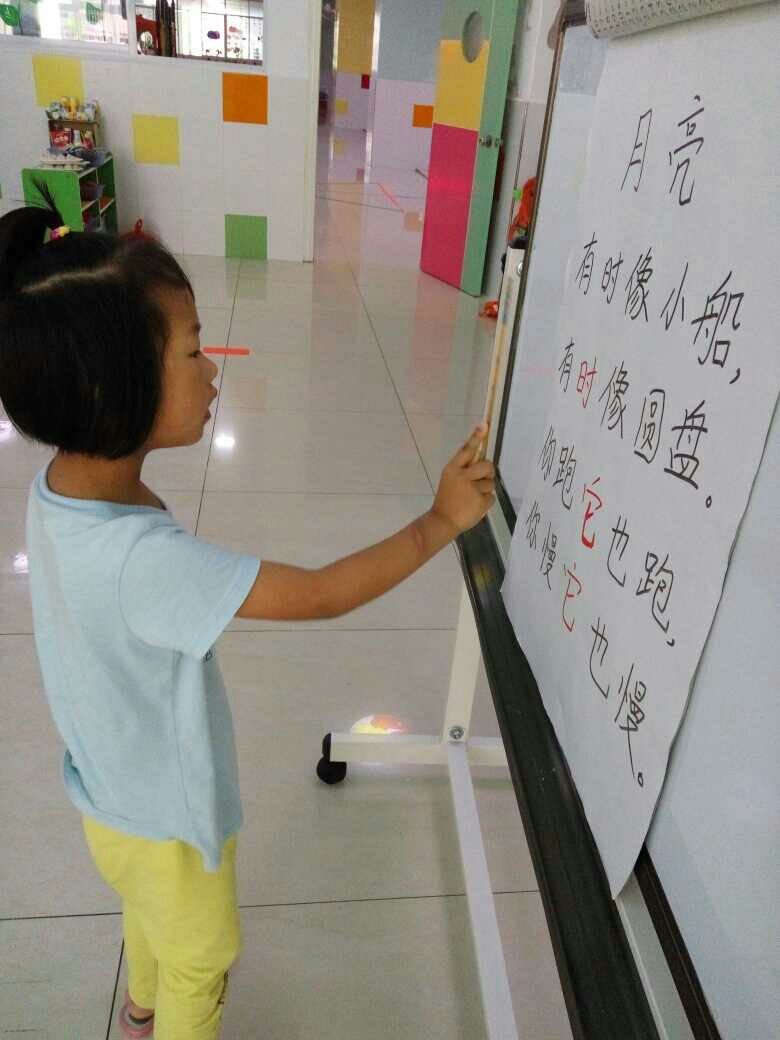 月亮
有时像小船,
有时像圆盘。
你跑它也跑,
你慢它也慢。